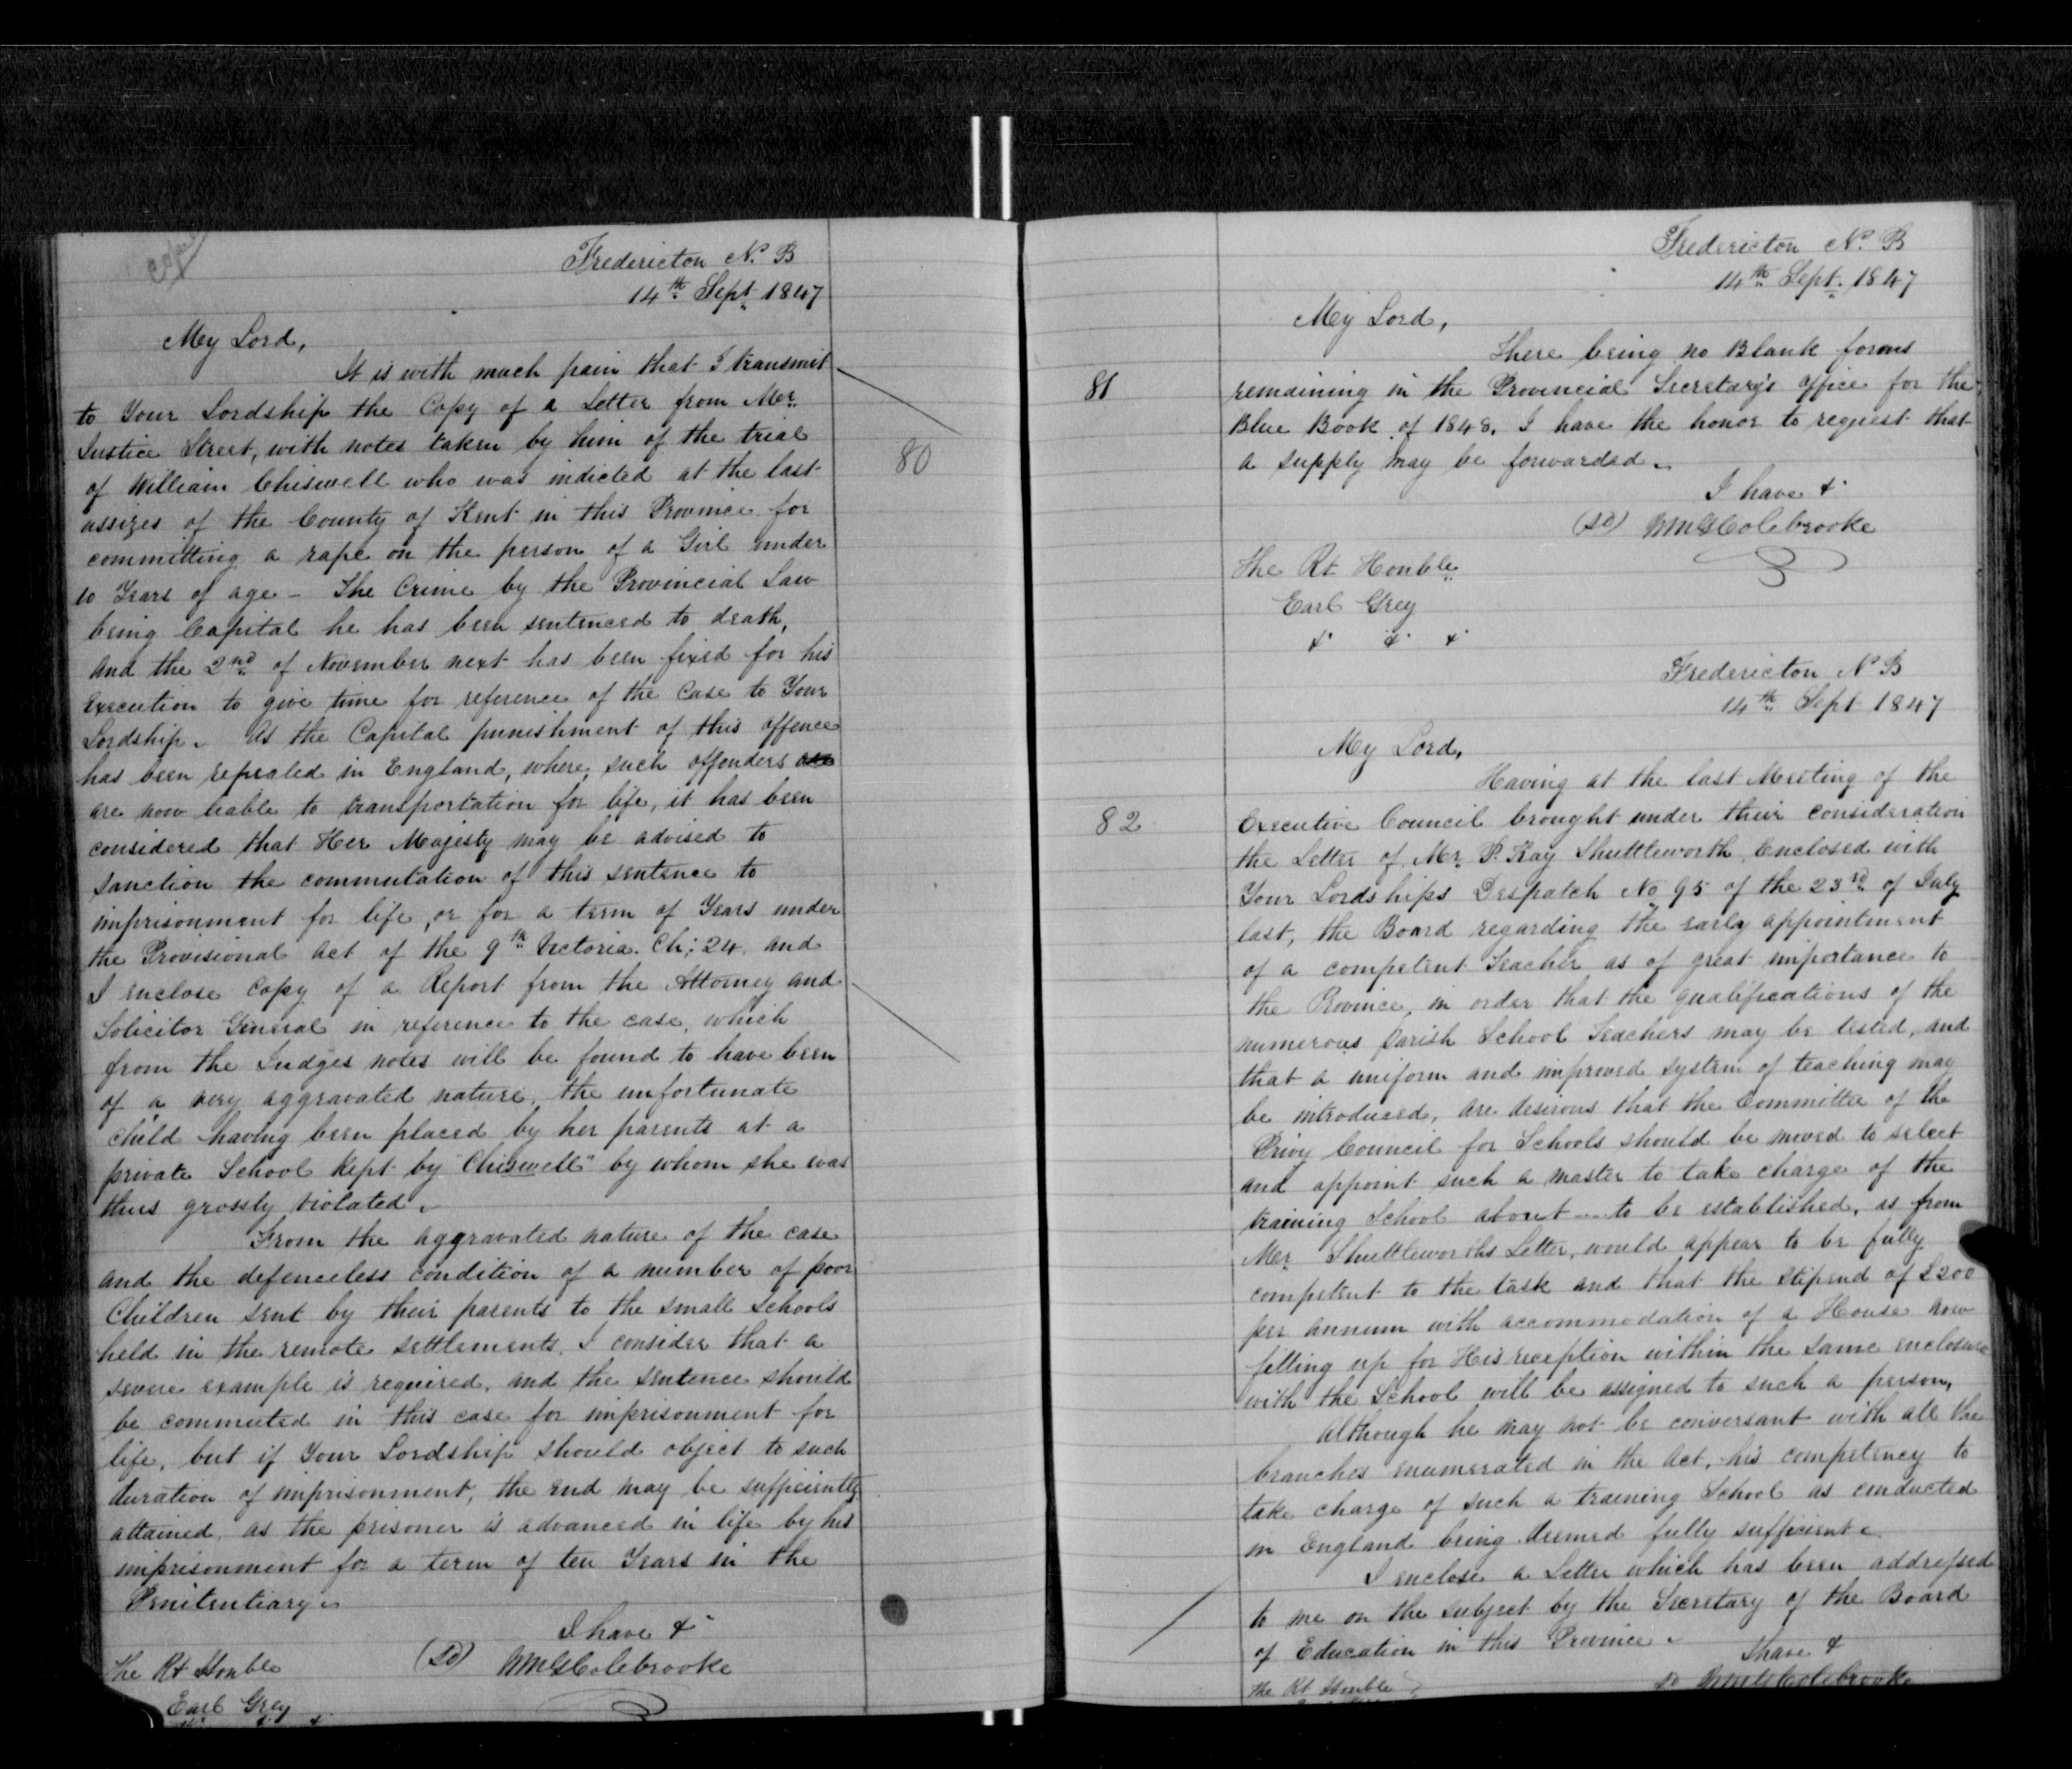 Copied
Fredericton N. B
14th Sept 1847
My Lord,
It is with much pain that I transmit
to Your Lordship the Copy of a Letter from Mr.
Justice Street, with notes taken by him of the trial
80
of William Chiswell who was indicted at the last
assizes of the County of Kent in this Province for
committing a rape on the person of a Girl under
10 Years of age - The Crime by the Provincial Law
being Capital he has been sentenced to death,
and the 2nd of November next has been fixed for his
execution to give time for reference of the Case to Your
Lordship. As the Capital punishment of this offence
has been repealed in England, where, such offenders are
are now liable to transportation for life, it has been
considered that Her Majesty may be advised to
sanction the commutation of this sentence to
imprisonment for life, or for a term of Years under
the Provisional Act of the 9th Victoria. Ch: 24. and
I enclose Copy of a Report from the Attorney and
Solicitor General in reference to the case, which
from the Judges notes will be found to have been
of a very aggravated nature, the unfortunate
child having been placed by her parents at a
private School kept by "Chiswell" by whom she was
thus grossly violated.
From the aggravated nature of the case
and the defenceless condition of a number of poor
Children sent by their parents to the small schools
held in the remote settlements, I consider that a
severe example is required, and the sentence should
be commuted in this case for imprisonment for
life, but if Your Lordship should object to such
duration of imprisonment, the end may be sufficiently
attained, as the prisoner is advanced in life by his
imprisonment for a term of ten Years in the
Penitentiary.
I have &
(Sd) WmGColebrooke
The Rt Honble
Earl Grey
& &
Fredericton N. B
14th Sept. 1847
My Lord,
There being no Blank forms
81
remaining in the Provincial Secretary's office for the
Blue Book of 1848. I have the honor to request that
a supply may be forwarded.
I have &
(Sd) WmGColebrooke
The Rt Honble
Earl Grey
& & &
Fredericton N B
14th Sept 1847
My Lord,
Having at the last Meeting of the
82
Executive Council brought under their consideration
the Letter of Mr. P. Kay Shuttleworth, Enclosed with
Your Lordships Despatch No 95 of the 23rd of July
last, the Board regarding the early appointment
of a competent Teacher as of great importance to
the Province, in order that the qualifications of the
numerous parish School Teachers may be tested, and
that a uniform and improved system of teaching may
be introduced, are desirous that the Committee of the
Privy Council for Schools should be moved to select
and appoint such a master to take charge of the
training School about to be established, as from
Mr. Shuttleworths Letter, would appear to be fully
competent to the task and that the stipend of £200
per annum with accommodation of a House now
fitting up for His reception within the same enclosure
with the School will be assigned to such a person,
Although he may not be conversant with all the
branches enumerated in the Act, his competency to
take charge of such a training School as conducted
in England being deemed fully sufficient.
I enclose a Letter which has been addressed
to me on the subject by the Secretary of the Board
of Education in this Province.
I have &
Sd WmGColebrooke
The Rt Honble